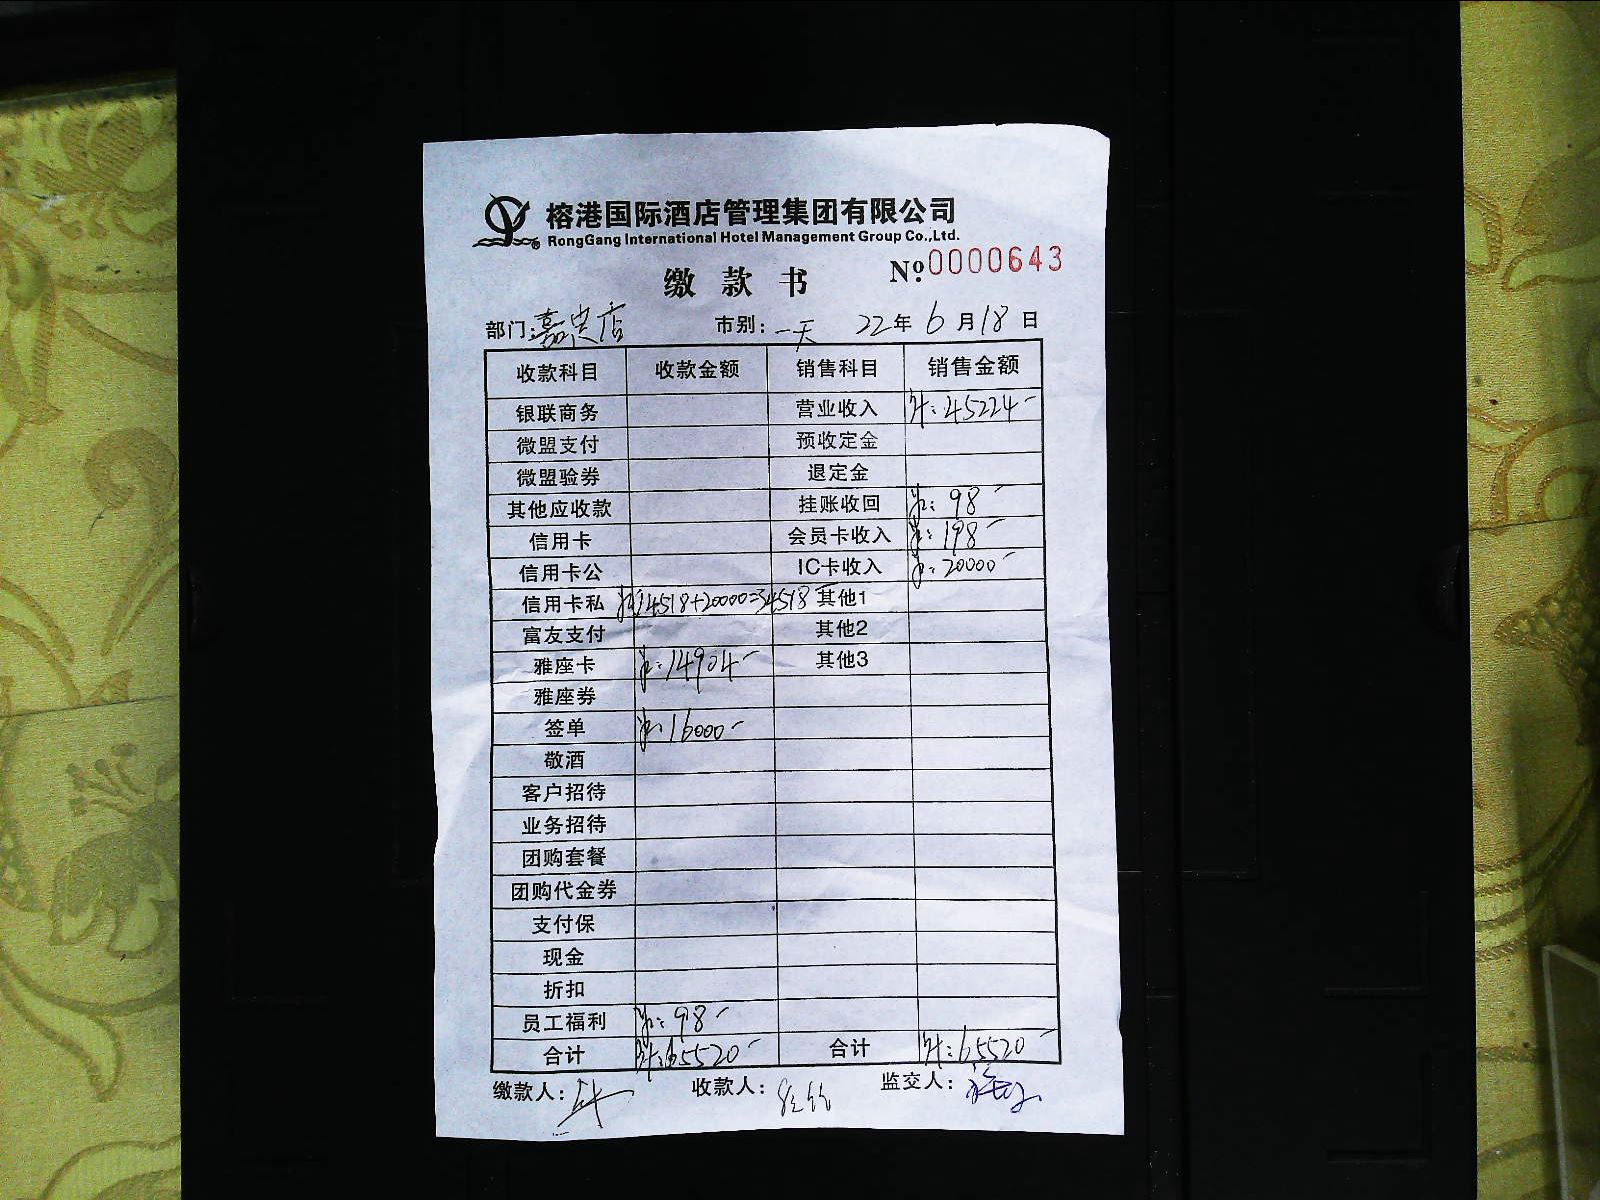 榕港国际酒店管理集团有限公司
RongGang International Hotel Management Group Co.,Ltd.
缴款书 №0000643
部门:嘉定店 市别:一天 22年6月18日
收款科目 收款金额 销售科目 销售金额
银联商务 营业收入 计:45224-
微盟支付 预收定金
微盟验券 退定金
其他应收款 挂账收回 98-
信用卡 会员卡收入 198-
信用卡公 IC卡收入 20000-
信用卡私 14518+20000=34518 其他1
富友支付 其他2
雅座卡 14904- 其他3
雅座券
签单 16000-
敬酒
客户招待
业务招待
团购套餐
团购代金券
支付保
现金
折扣
员工福利 98-
合计 计:65520- 合计 计:65520-
缴款人: 收款人: 监交人: